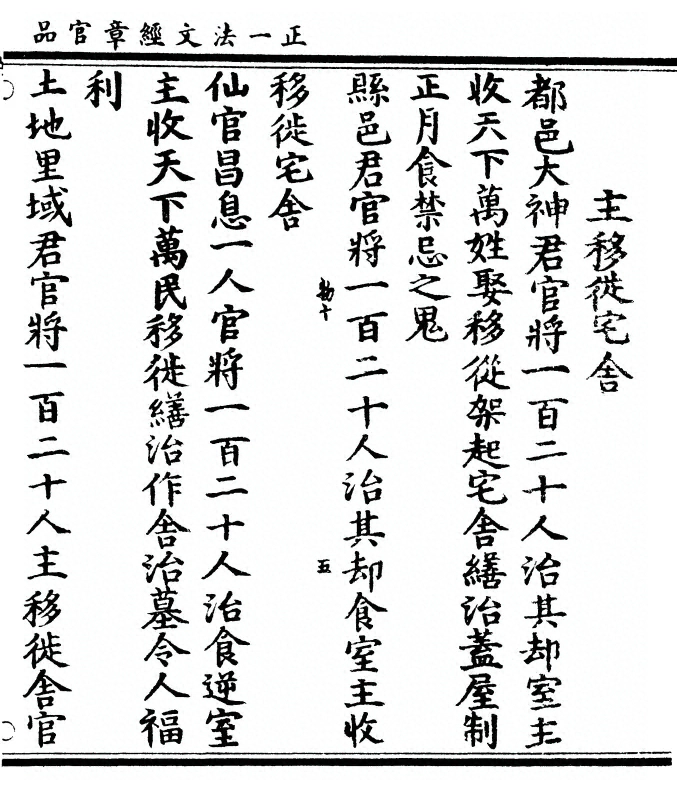 正一法文經章官品
主移徙宅舍
都邑大神君官將一百二十人治其却室主
收天下萬姓娶移從架起宅舍繕治蓋屋制
正月食禁忌之鬼
縣邑君官將一百二十人治其却食室主收
移徙宅舍
仙官昌息一人官將一百二十人治食逆室
主收天下萬民移徙繕治作舍治墓令人福
利
土地里域君官將一百二十人主移徙舍官
五